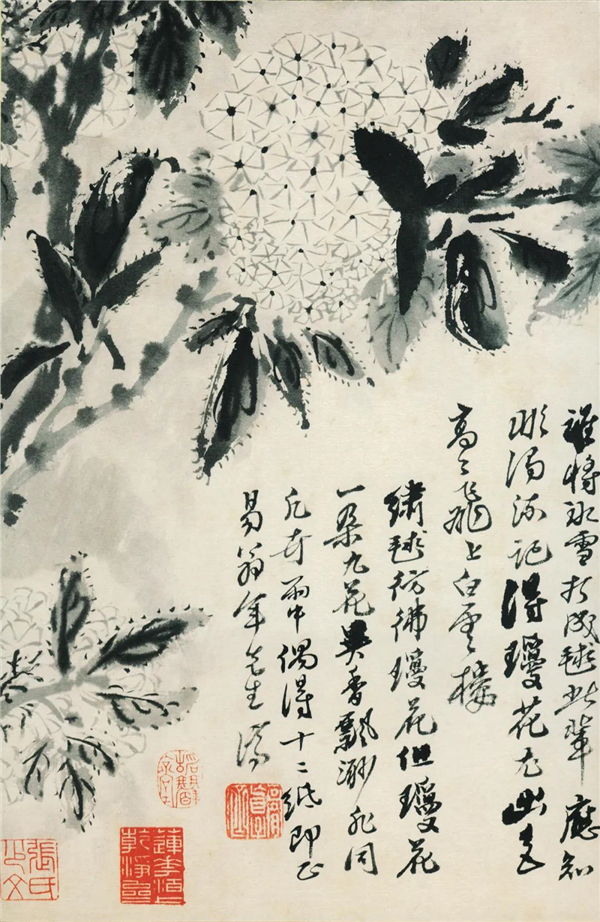 誰將冰雪打成毬此輩應知
濁流記得瓊花出色
高高飛上白雲樓
繡毬彷彿瓊花但瓊花
一朵九花異香飄渺非同
凡卉雨中偶得十二紙即正
易翁年先生 濟